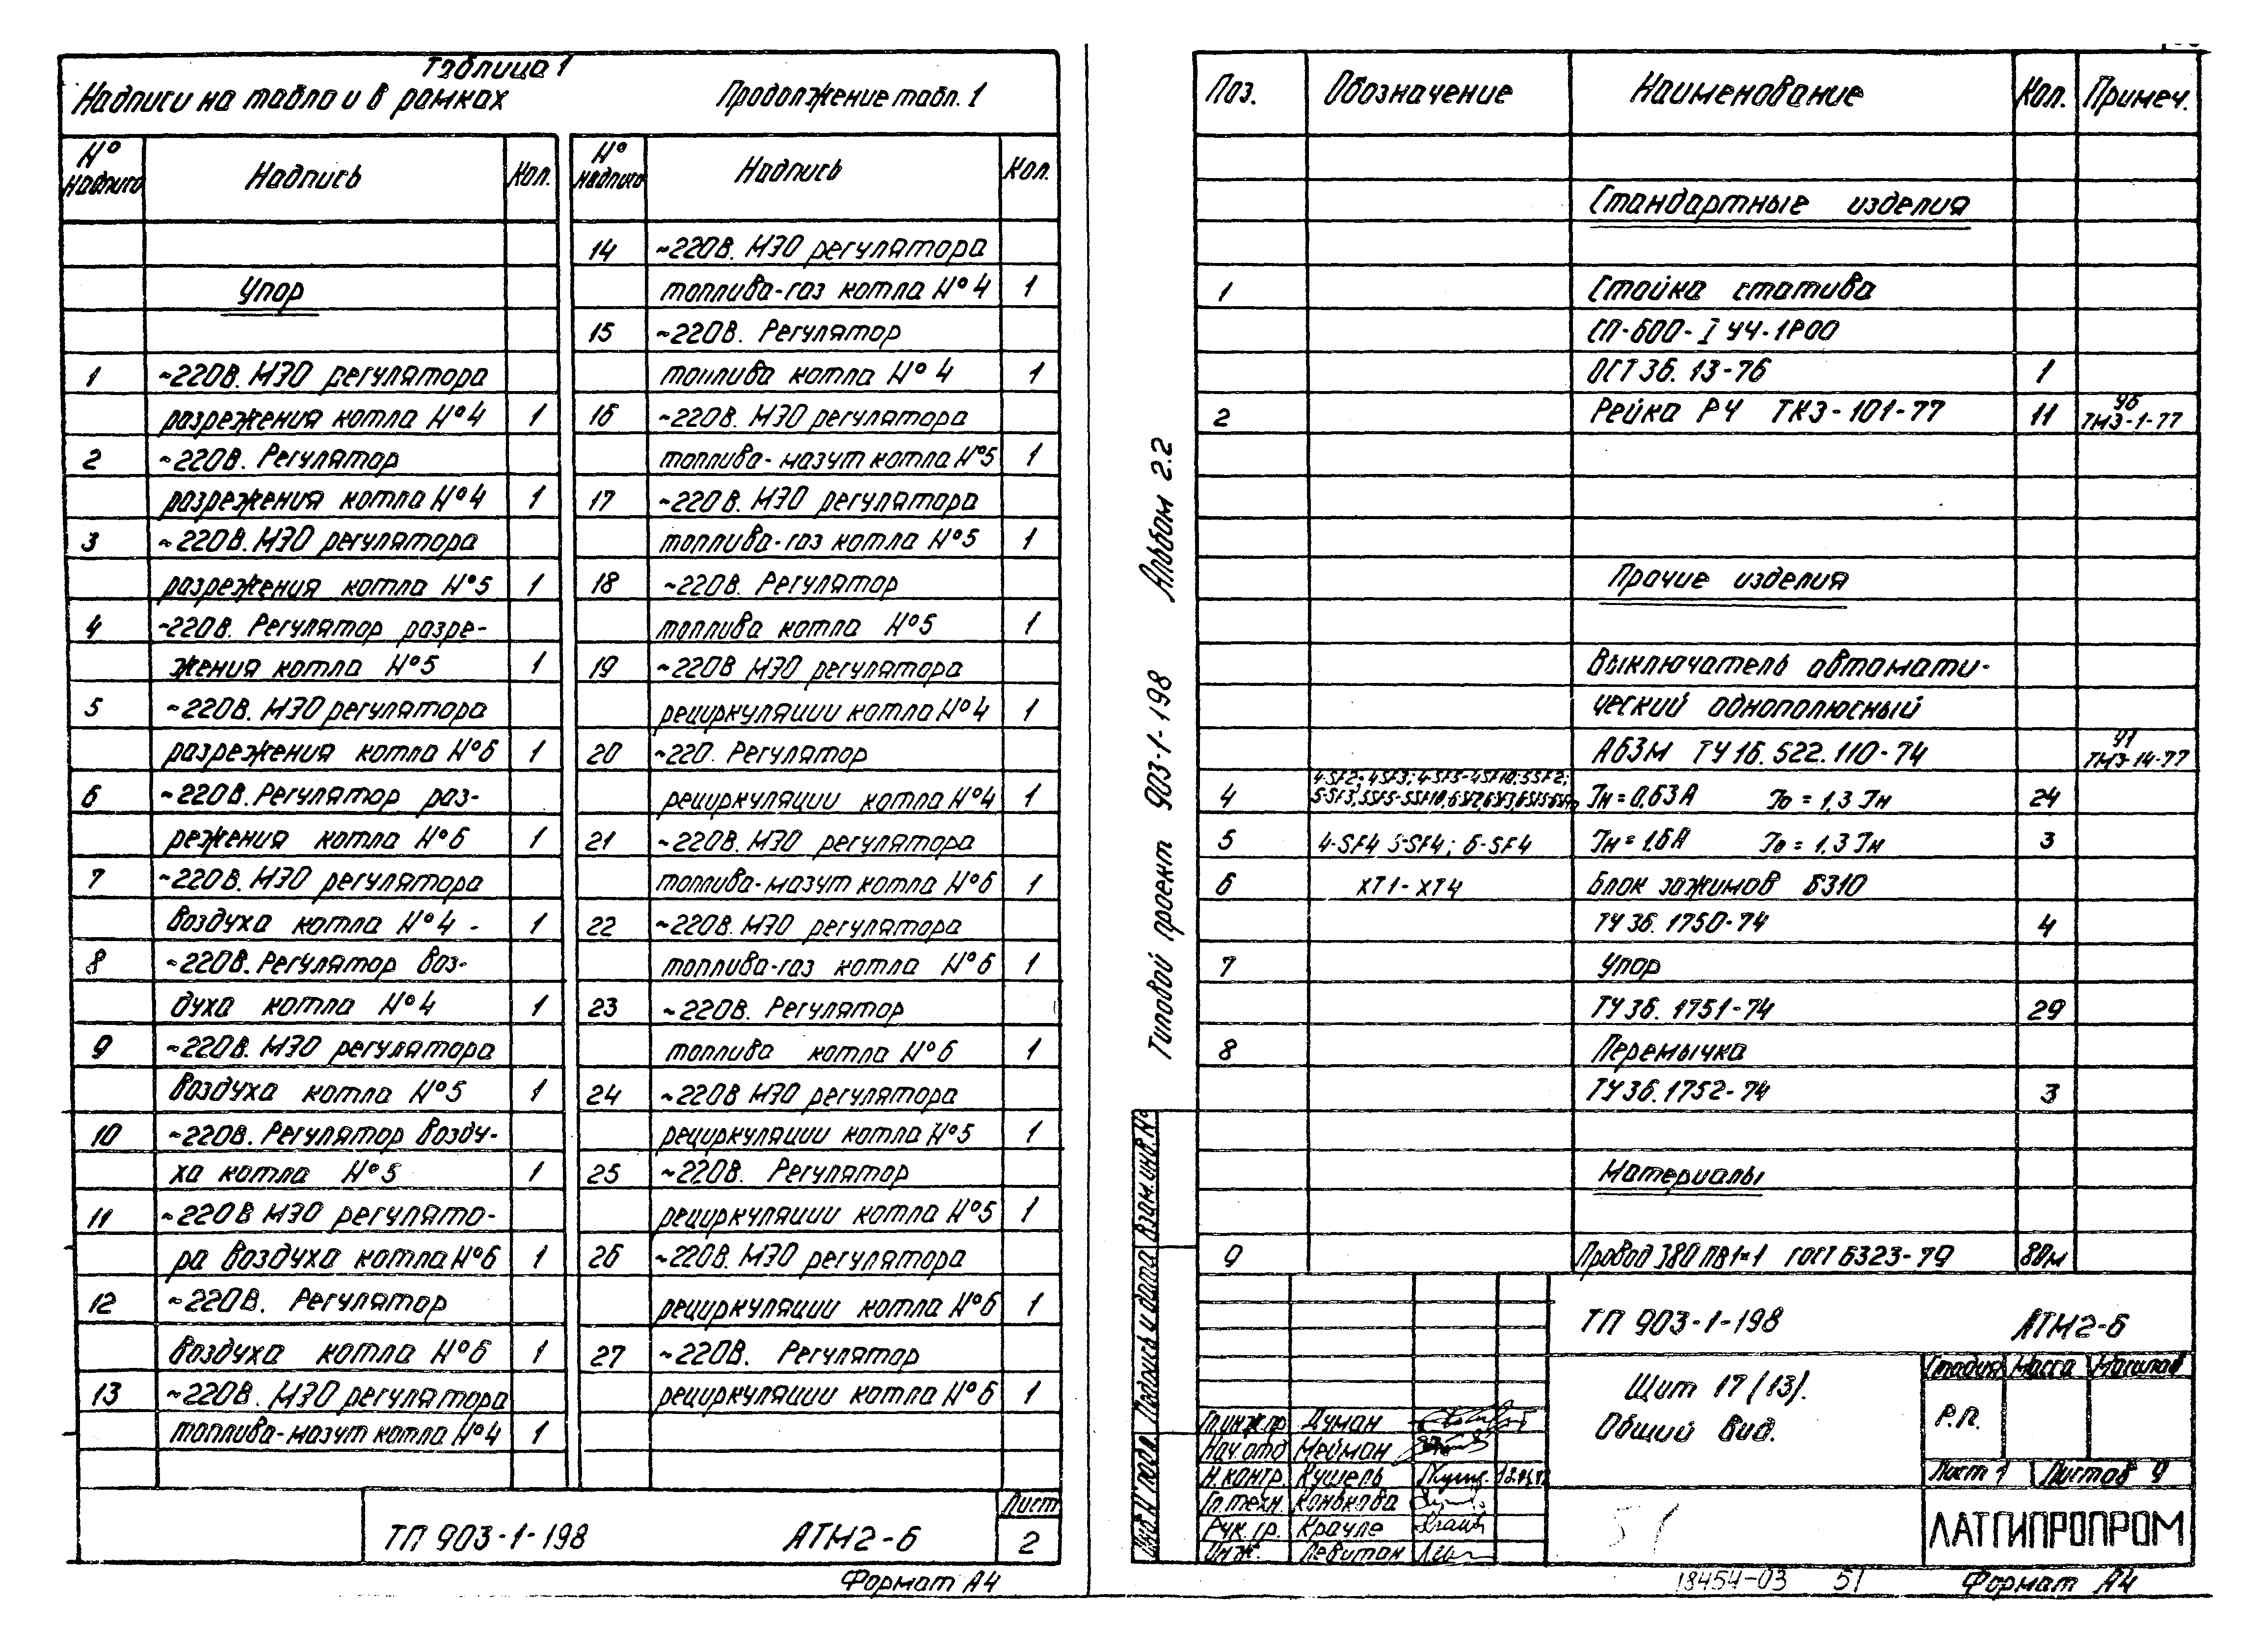 Таблица 1
Надписи на табло и в рамках
Продолжение табл. 1
№ надписи Надпись Кол.
Упор
1 ~220В. МЭО регулятора
разрежения котла №4 1
2 ~220В. Регулятор
разрежения котла №4 1
3 ~220В. МЭО регулятора
разрежения котла №5 1
4 ~220В. Регулятор разре-
жения котла №5 1
5 ~220В. МЭО регулятора
разрежения котла №6 1
6 ~220В. Регулятор раз-
режения котла №6 1
7 ~220В. МЭО регулятора
воздуха котла №4 - 1
8 ~220В. Регулятор воз-
духа котла №4 1
9 ~220В. МЭО регулятора
воздуха котла №5 1
10 ~220В. Регулятор возду-
ха котла №5 1
11 ~220В МЭО регулято-
ра воздуха котла №6 1
12 ~220В. Регулятор
воздуха котла №6 1
13 ~220В. МЭО регулятора
топлива-мазут котла №4 1
№ надписи Надпись Кол.
14 ~220В. МЭО регулятора
топлива-газ котла №4 1
15 ~220В. Регулятор
топлива котла №4 1
16 ~220В. МЭО регулятора
топлива-мазут котла №5 1
17 ~220В. МЭО регулятора
топлива-газ котла №5 1
18 ~220В. Регулятор
топлива котла №5 1
19 ~220В МЭО регулятора
рециркуляции котла №4 1
20 ~220. Регулятор
рециркуляции котла №4 1
21 ~220В. МЭО регулятора
топлива-мазут котла №6 1
22 ~220В. МЭО регулятора
топлива-газ котла №6 1
23 ~220В. Регулятор
топлива котла №6 1
24 ~220В МЭО регулятора
рециркуляции котла №5 1
25 ~220В. Регулятор
рециркуляции котла №5 1
26 ~220В. МЭО регулятора
рециркуляции котла №6 1
27 ~220В. Регулятор
рециркуляции котла №6 1
ТП 903-1-198 АТМ2-6
Лист
2
Формат А4
Типовой проект 903-1-198 Альбом 2.2
Инв.№ подл. Подпись и дата Взам.инв.№
Поз. Обозначение Наименование Кол. Примеч.
Стандартные изделия
1 Стойка статива
СП-600-I УЧ-1Р00
ОСТ 36.13-76 1
2 Рейка РЧ ТКЗ-101-77 11 У6 ТМЗ-1-77
Прочие изделия
Выключатель автомати-
ческий однополюсный
А63М ТУ 16.522.110-74 У1 ТМЗ-14-77
4-SF2; 4-SF3; 4-SF5-4SF10; 5SF2;
4 Iн = 0,63А Iо = 1,3 Iн 24
5 4-SF4 5-SF4; 6-SF4 Iн = 1,6А Iо = 1,3 Iн 3
6 ХТ1-ХТ4 Блок зажимов БЗ10
ТУ 36.1750-74 4
7 Упор
ТУ 36.1751-74 29
8 Перемычка
ТУ 36.1752-74 3
Материалы
9 Провод 380 ПВ1×1 ГОСТ 6323-79 80м
ТП 903-1-198 АТМ2-6
Щит 17 (13).
Общий вид.
Стадия Масса Масштаб
Р.П.
Лист 1 Листов 9
ЛАТГИПРОПРОМ
Гл.инж.пр. Думан
Нач.отд Мейман
Н.контр. Кушель
Гл.техн. Конькова
Рук.гр. Крауле
Инж. Левитан
51
18454-03 51
Формат А4